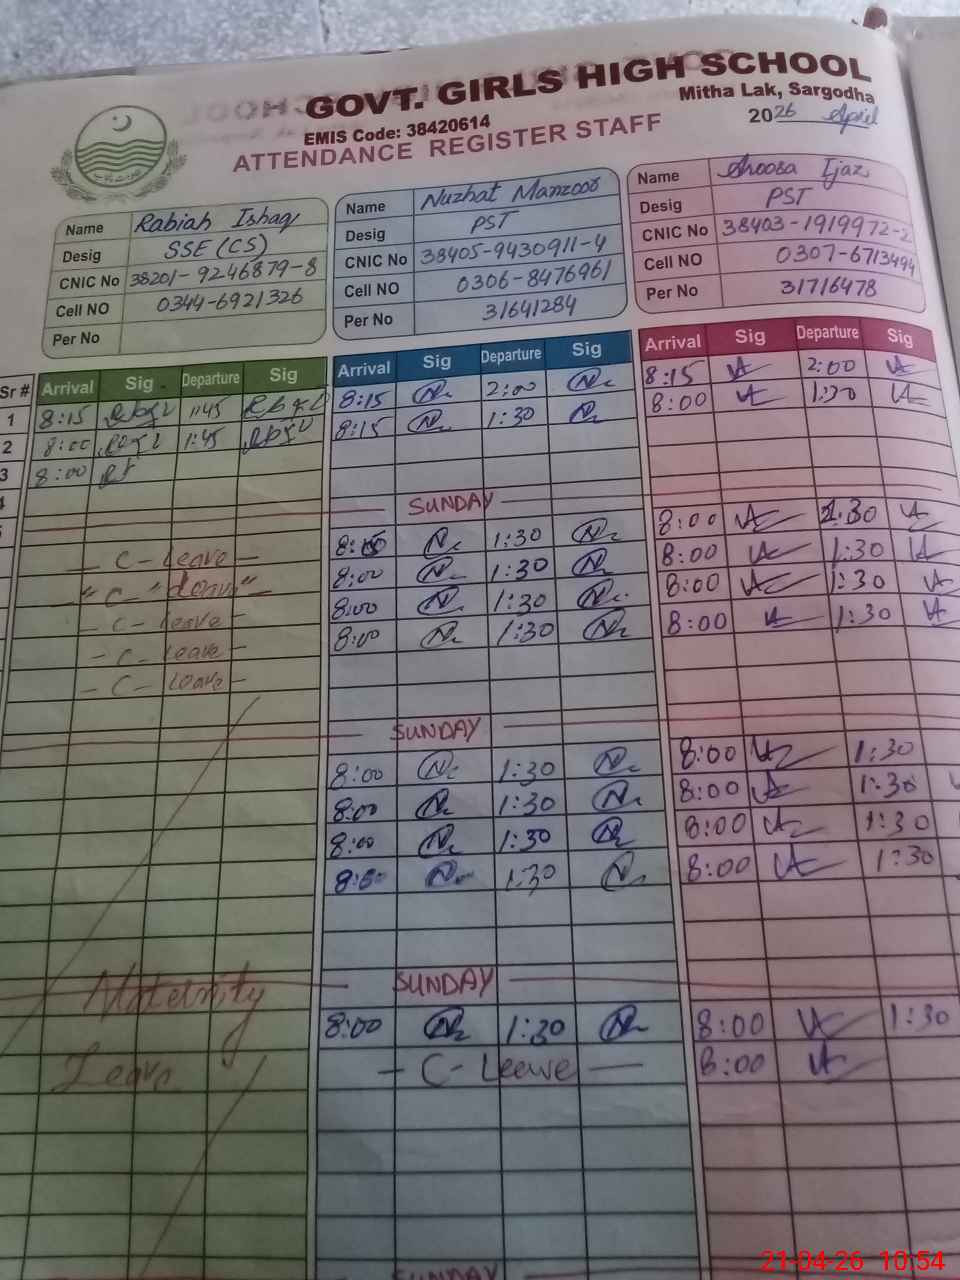 GOVT. GIRLS HIGH SCHOOL
Mitha Lak, Sargodha
EMIS Code: 38420614
2026 April
ATTENDANCE REGISTER STAFF
Name Rabiah Ishaq
Desig SSE (CS)
CNIC No 38201-9246879-8
Cell NO 0344-6921326
Per No
Name Nuzhat Manzoor
Desig PST
CNIC No 38405-9430911-4
Cell NO 0306-8476961
Per No 31641284
Name Ijaz
Desig PST
CNIC No 38403-1919972-2
Cell NO 0307-6713494
Per No 31716478
Sr # Arrival Sig Departure Sig Arrival Sig Departure Sig Arrival Sig Departure Sig
1 8:15 1:45 8:15 2:00 8:15 2:00
2 8:00 1:45 8:15 1:30 8:00 1:30
3 8:00
4
SUNDAY
- C - Leave - 8:00 1:30
- " C " Leave " - 8:00 1:30 8:00 1:30
- C - Leave - 8:00 1:30 8:00 1:30
- C - Leave - 8:00 1:30 8:00 1:30
- C - Leave -
SUNDAY
8:00 1:30 8:00 1:30
8:00 1:30 8:00 1:30
8:00 1:30 8:00 1:30
8:00 1:30 8:00 1:30
SUNDAY
Maternity 8:00 1:30 8:00 1:30
Leave - C - Leave - 8:00
SUNDAY
21-04-26 10:54